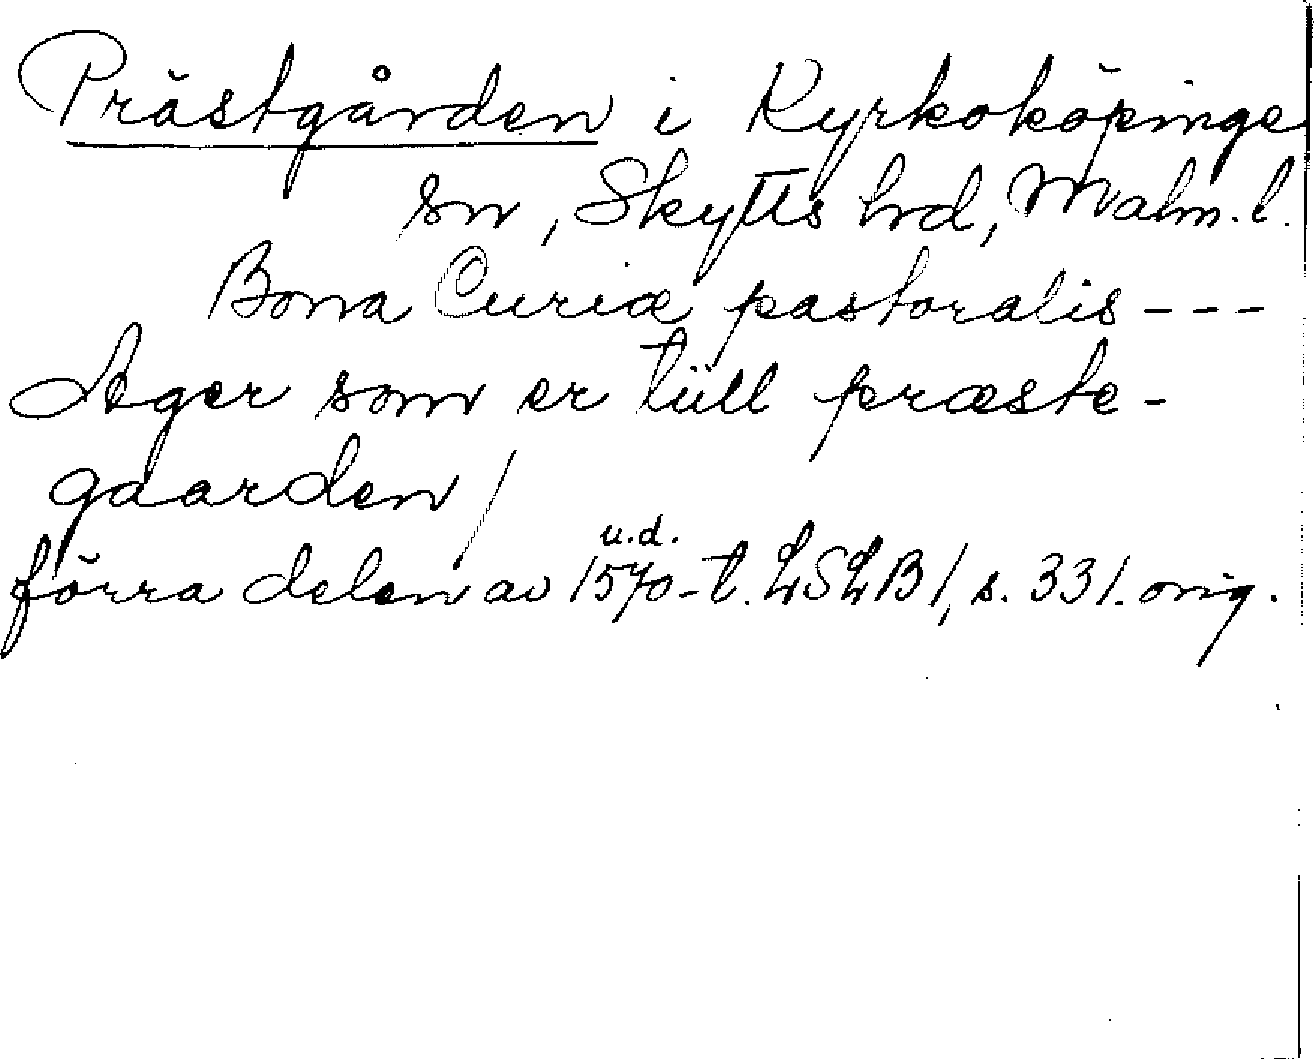 Prästgården i Kyrkoköpinge
sn, Skytts hd, Malm. l.
Bona Curiæ pastoralis - - -
Ager som er tüll præste-
gaarden /
u.d.
förra delen av 1570-t. LSLB 1, s. 331. orig.